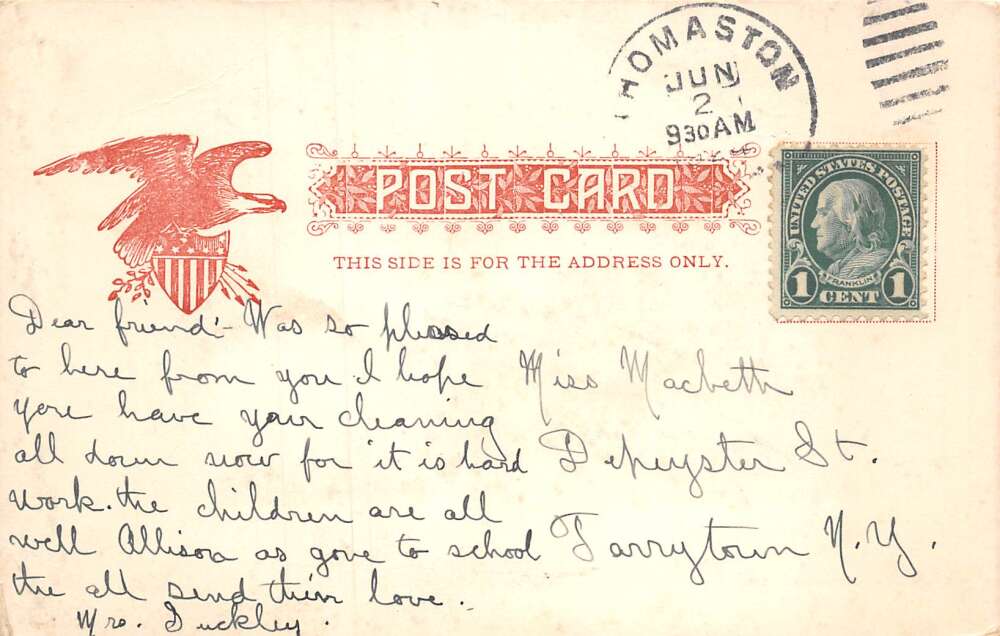 THOMASTON
JUN
2
930AM
POST CARD
THIS SIDE IS FOR THE ADDRESS ONLY.
UNITED STATES POSTAGE
FRANKLIN
1 CENT 1
Dear friend:- Was so plessed
to here from you I hope
yore have your cleaning
all down now for it is hard
work. the children are all
well Allison as gone to school
the all send thein love.
Mrs. Duckley.
Miss Macbeth
Depeyster St.
Tarrytown N.Y.